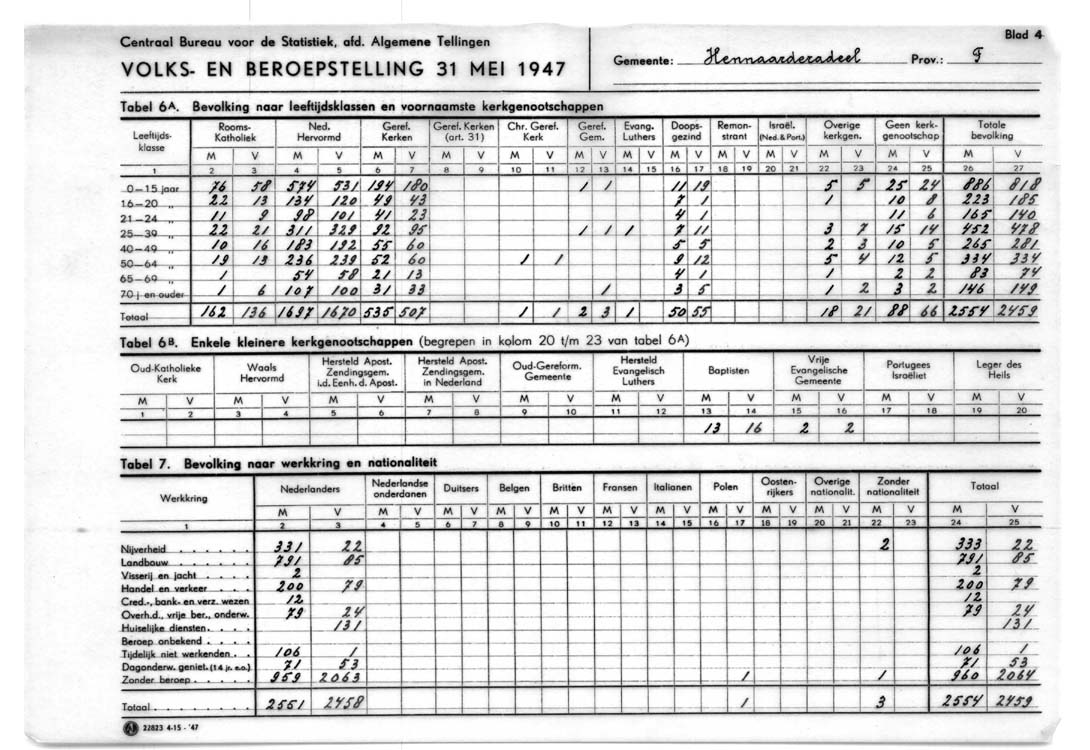 Blad 4
Centraal Bureau voor de Statistiek, afd. Algemene Tellingen
VOLKS- EN BEROEPSTELLING 31 MEI 1947
Gemeente: Hennaarderadeel Prov.: F
Tabel 6A. Bevolking naar leeftijdsklassen en voornaamste kerkgenootschappen
Leeftijds-klasse Rooms-Katholiek Ned. Hervormd Geref. Kerken Geref. Kerken (art. 31) Chr. Geref. Kerk Geref. Gem. Evang. Luthers Doops-gezind Remon-strant Israël. (Ned. & Port.) Overige kerkgen. Geen kerk-genootschap Totale bevolking
M V M V M V M V M V M V M V M V M V M V M V M V M V
1 2 3 4 5 6 7 8 9 10 11 12 13 14 15 16 17 18 19 20 21 22 23 24 25 26 27
0-15 jaar 76 58 574 531 194 180 1 1 11 19 5 5 25 24 886 818
16-20 „ 22 13 134 120 49 43 7 1 1 10 8 223 185
21-24 „ 11 9 98 101 41 23 4 1 11 6 165 140
25-39 „ 22 21 311 329 92 95 1 1 1 7 11 3 7 15 14 452 478
40-49 „ 10 16 183 192 55 60 5 5 2 3 10 5 265 281
50-64 „ 19 13 236 239 52 60 1 1 9 12 5 4 12 5 334 334
65-69 „ 1 54 58 21 13 4 1 1 2 2 83 74
70 j. en ouder 1 6 107 100 31 33 1 3 5 1 2 3 2 146 149
Totaal 162 136 1697 1670 535 507 1 1 2 3 1 50 55 18 21 88 66 2554 2459
Tabel 6B. Enkele kleinere kerkgenootschappen (begrepen in kolom 20 t/m 23 van tabel 6A)
Oud-Katholieke Kerk Waals Hervormd Hersteld Apost. Zendingsgem. i.d. Eenh. d. Apost. Hersteld Apost. Zendingsgem. in Nederland Oud-Gereform. Gemeente Hersteld Evangelisch Luthers Baptisten Vrije Evangelische Gemeente Portugees Israëliet Leger des Heils
M V M V M V M V M V M V M V M V M V M V
1 2 3 4 5 6 7 8 9 10 11 12 13 14 15 16 17 18 19 20
13 16 2 2
Tabel 7. Bevolking naar werkkring en nationaliteit
Werkkring Nederlanders Nederlandse onderdanen Duitsers Belgen Britten Fransen Italianen Polen Oosten-rijkers Overige nationalit. Zonder nationaliteit Totaal
M V M V M V M V M V M V M V M V M V M V M V M V
1 2 3 4 5 6 7 8 9 10 11 12 13 14 15 16 17 18 19 20 21 22 23 24 25
Nijverheid . . . . . . 331 22 2 333 22
Landbouw . . . . . . 791 85 791 85
Visserij en jacht . . . . 2 2
Handel en verkeer . . . 200 79 200 79
Cred.-, bank- en verz. wezen 12 12
Overh.d., vrije ber., onderw. 79 24 79 24
Huiselijke diensten. . . . 131 131
Beroep onbekend . . . .
Tijdelijk niet werkenden . . 106 1 106 1
Dagonderw. geniet. (14 jr. e.o.) 71 53 71 53
Zonder beroep . . . . . 959 2063 1 1 960 2064
Totaal . . . . . . . . 2551 2458 1 3 2554 2459
22823 4-15 - '47